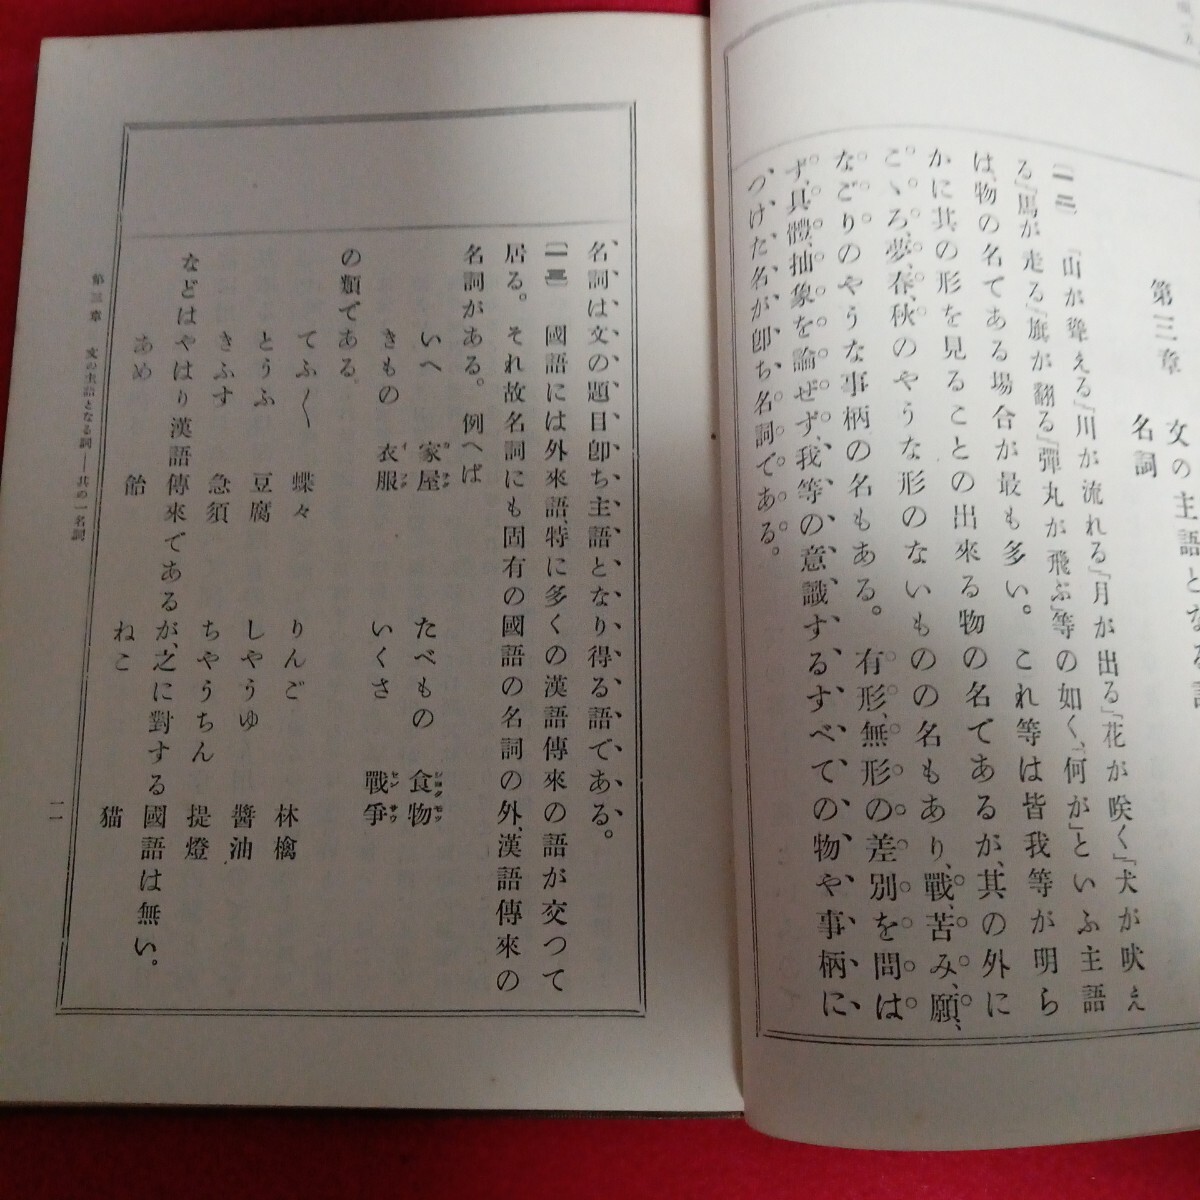 第三章　文の主語となる詞
名詞
〔一二〕　『山が聳える』『川が流れる』『月が出る』『花が咲く』『犬が吠え
る』『馬が走る』『旗が翻る』『彈丸が飛ぶ』等の如く、「何が」といふ主語
は、物の名である場合が最も多い。これ等は皆我等が明ら
かに其の形を見ることの出來る物の名であるが、其の外に
こゝろ、夢、春、秋のやうな形のないものの名もあり、戰、苦み、願、
などりのやうな事柄の名もある。有形、無形の差別を問は
ず、具體、抽象を論ぜず、我等の意識するすべての物や事柄に
つけた名が卽ち名詞である。
名詞は、文の題目卽ち主語となり得る語である。
〔一三〕　國語には外來語、特に多くの漢語傳來の語が交つて
居る。それ故名詞にも固有の國語の名詞の外、漢語傳來の
名詞がある。例へば
いへ　家屋　たべもの　食物
きもの　衣服　いくさ　戰爭
の類である。
てふ〱　蝶々　りんご　林檎
とうふ　豆腐　しやうゆ　醬油
きふす　急須　ちやうちん　提燈
などはやはり漢語傳來であるが、之に對する國語は無い。
あめ　飴　ねこ　猫
第三章　文の主語となる詞―其の一名詞
一一